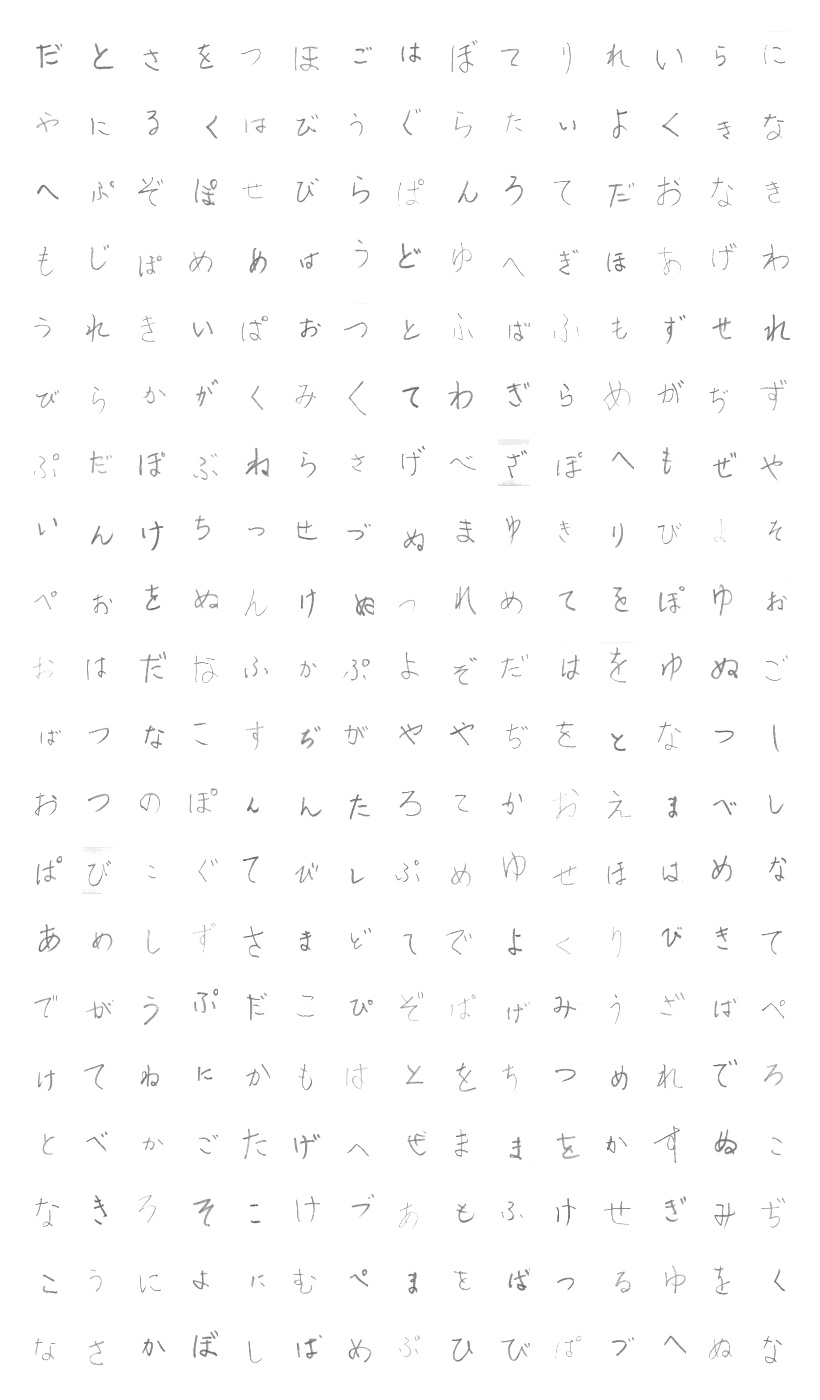 だとさをつほごはぼてりれいらに
やにるくはびうぐらたいよくきな
へぷぞぽせびらぱんろてだおなき
もじぱめめはうどゆへぎほあげわ
うれきいぱおつとふばふもずせれ
びらかがくみくてわぎらめがぢず
ぷだぽぶねらさげべざぽへもぜや
いんけちっせづぬまゆきりびよそ
ぺおをぬんけぬつれめてをぽゆお
おはだなふかぷよぞだはをゆぬご
ばつなこすぢがややぢをとなつし
おつのぽんんたろてかおえまべし
ぱびこぐてびしぷめゆせほはめな
あめしずさまどてでよくりびきて
でがうぷだこぴぞぱげみうざばぺ
けてねにかもはとをちつめれでろ
とべかごたげへぜままをかすぬこ
なきろそこけづあもふけせぎみぢ
こうによにむぺまをばつるゆをく
なさかぼしばめぷひびぱづへぬな